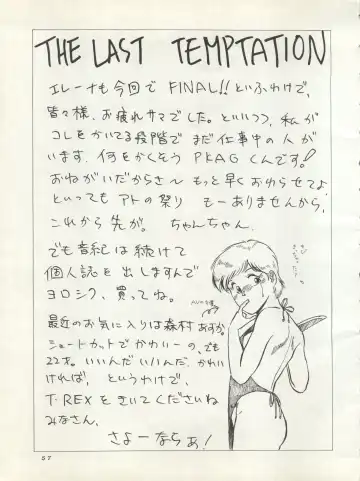 THE LAST TEMPTATION
エレーナも今回で FINAL!! といふわけで、
皆々様、お疲れサマでした。といいつつ、私が
コレをかいてる段階で まだ仕事中の人が
います。何をかくそう PKAG くんです!
おねがいだからさ〜 もっと早くおわらせてよ
といっても アトの祭り もーありませんから、
これから先が。 ちゃんちゃん。
でも音紀は続けて
個人誌を出しますんで
ヨロシク、買ってね。
最近のお気に入りは森村あすか。
ショートカットでかわいーの、でも
22才。いいんだいいんだ、かわい
ければ、というわけで、
T-REX をきいてくださいね
みなさん、
さよーならぁ!
57